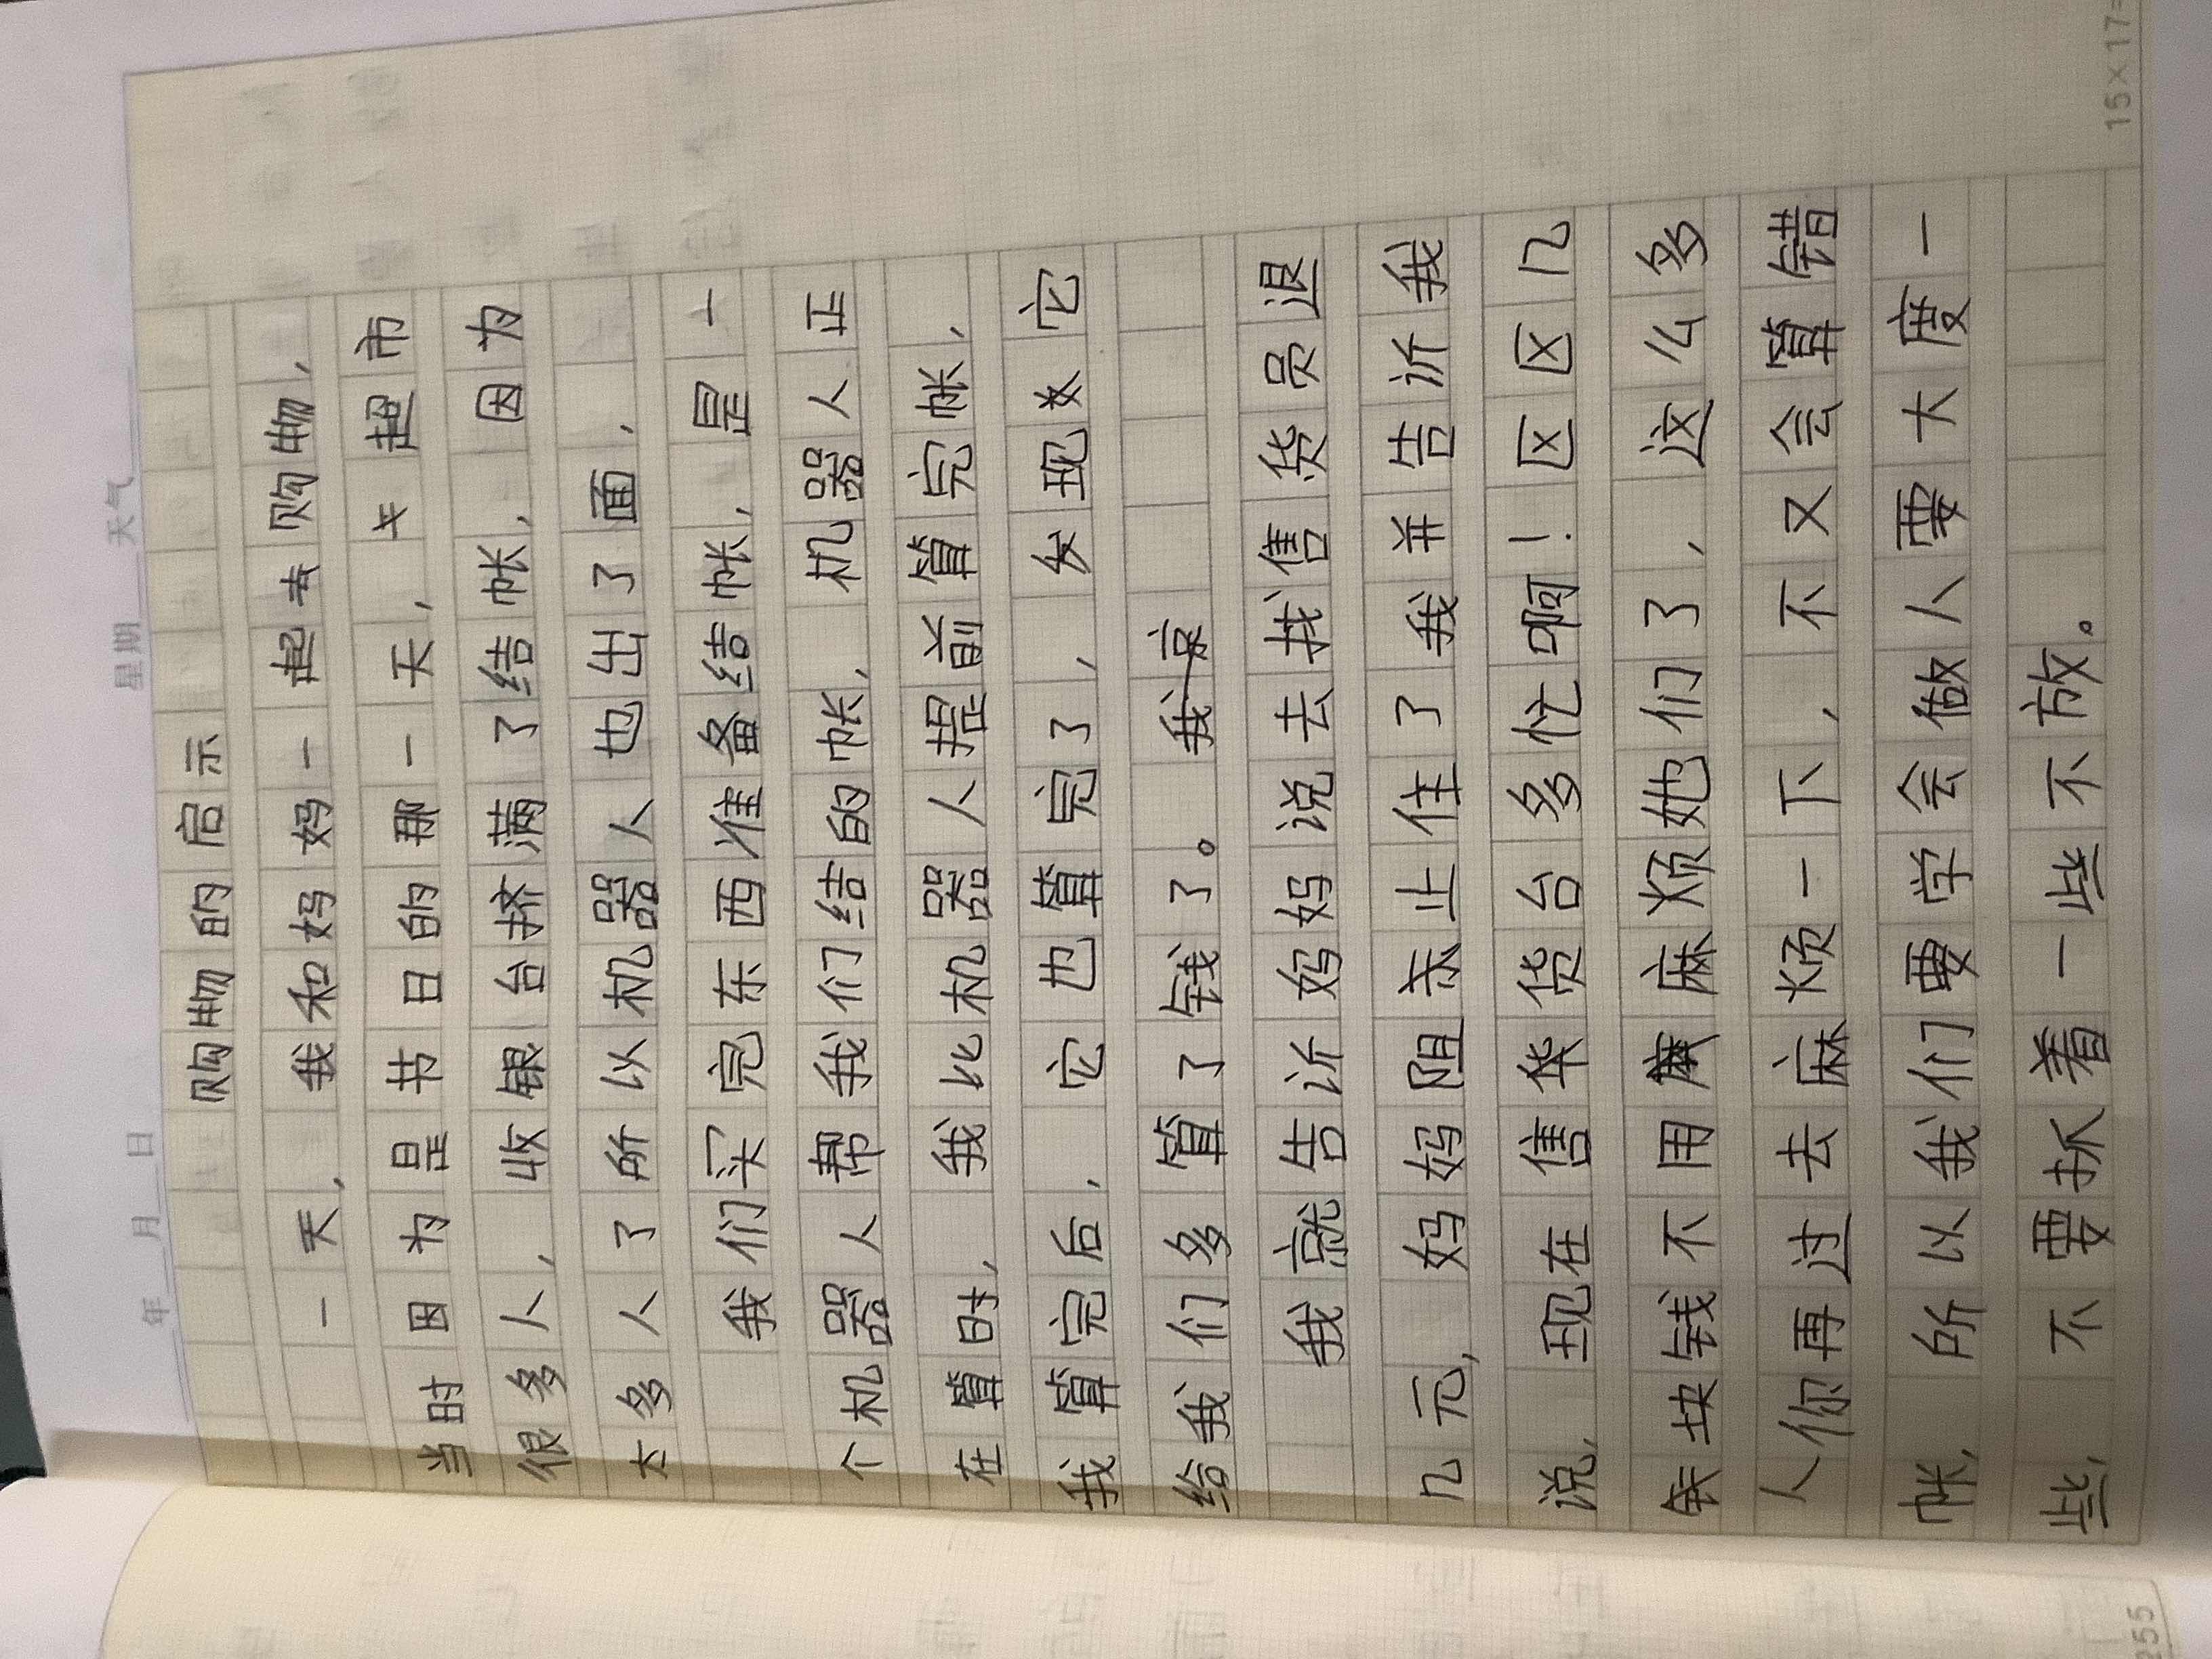 年 月 日 星期 天气
购物的启示
一天，我和妈妈一起去购物，
当时因为是节日的那一天，超市
很多人，收银台挤满了结帐，因为
太多人了所以机器人也出了面，
我们买完东西准备结帐，是一
个机器人帮我们结的帐，机器人正
在算时，我比机器人提前算完帐，
我算完后，它也算完了，发现数它
给我们多算了钱了。
我就告诉妈妈说去找售货员退
几元，妈妈阻止住了我并告诉我
说，现在售货台多忙啊！区区几
块钱不用麻烦她们了，这么多
人你再过去麻烦一下，不又会算错
帐，所以我们要学会做人要大度一
些，不要抓着一些不放。
15×17=
255